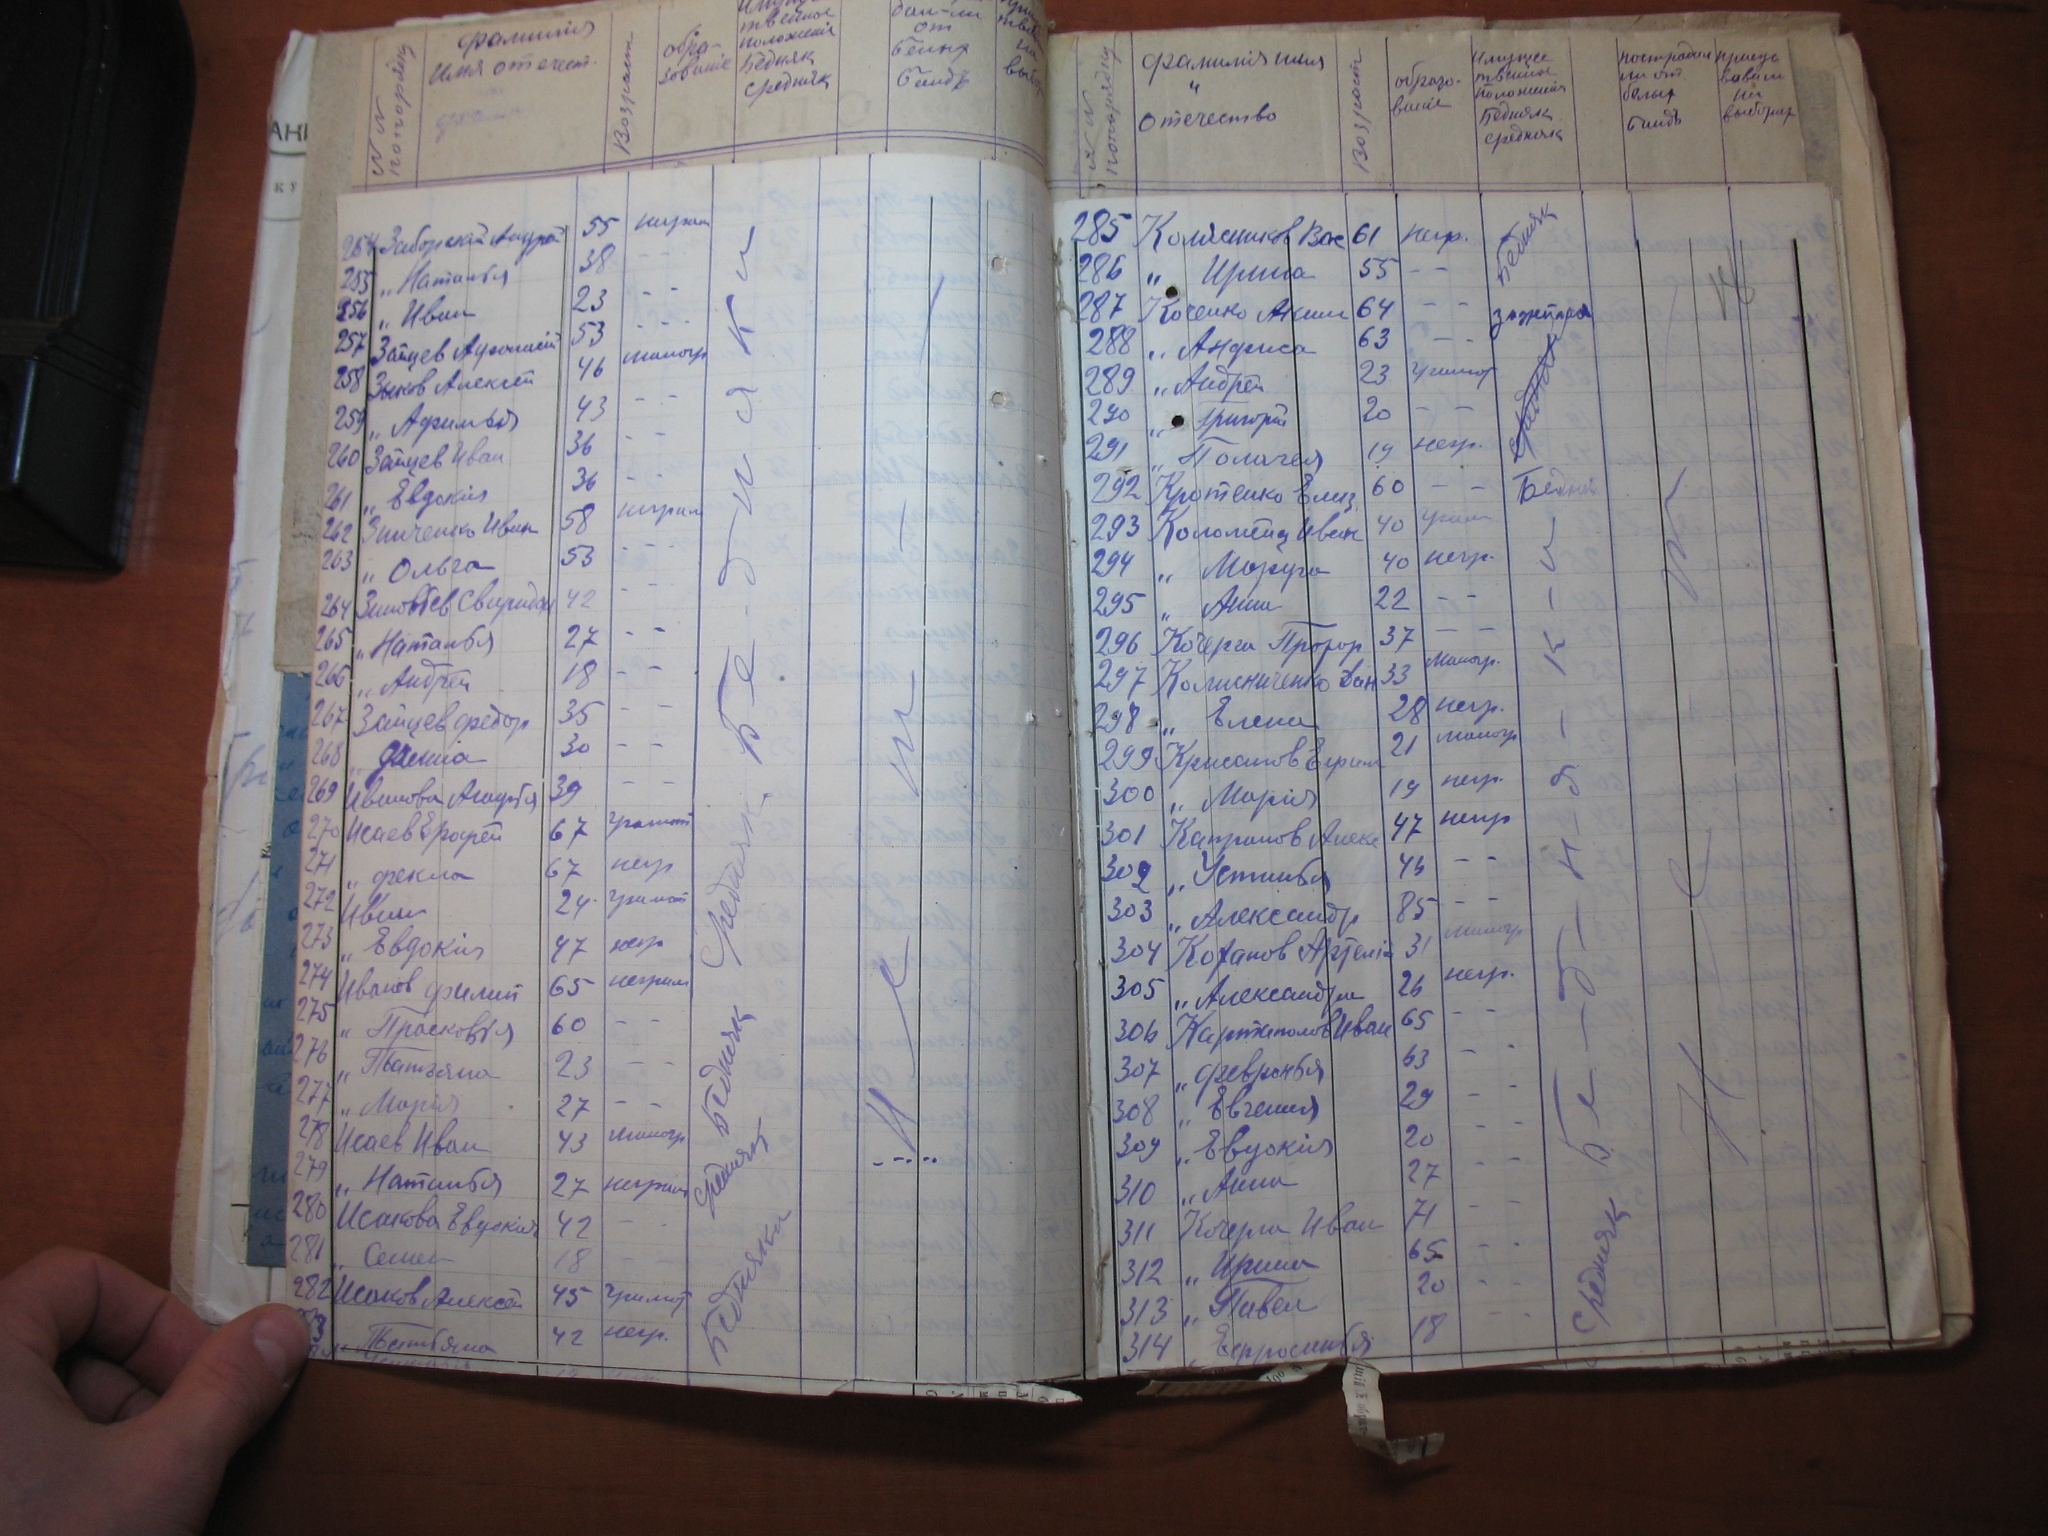 № № по порядку
фамилия
Имя отечест.
Возраст
обра-
зование
твенное
положенія
Бедняк
Средняк
от
белых
банд
254 Заборскій Андрей 55 неграм
255 „ Наталья 38 - -
256 „ Иван 23 - -
257 Зайцев Афонасій 53 - - -
258 Зыков Алексей 46 малогр
259 „ Афимья 43 - -
260 Зайцев Иван 36 - -
261 „ Евдокія 36 - -
262 Зинченко Иван 58 неграм
263 „ Ольга 53 - - -
264 Зиновьев Свиридон 42 - -
265 „ Наталья 27 - -
266 „ Андрей 18 - -
267 Зайцев федор 35 - -
268 30 - -
269 Иванова Агафья 39 - -
270 Исаев Ерофей 67 грамот
271 „ фекла 67 негр
272 Иван 24 грамот
273 „ Евдокія 47 негр
274 Иванов филип 65 неграм
275 „ Прасковья 60 - -
276 „ Татьяна 23 - -
277 „ Марія 27 - -
278 Исаев Иван 43 малогр
279 „ Наталья 27 неграм
280 Исакова Евдокія 42 - -
281 „ Семен 18 - -
282 Исаков Алексей 45 грамот
„ Татьяна 42 негр.
Бе-дняки
Средняк
Бедняк
Средняк
Бедняки
№ № по порядку
фамилия имя
„
отечество
Возраст
образо-
вание
Имуще
твенное
положенія
Бедняк
средняк
пострадал
ли от
белых
банд
присуд
вовал
на
выборах
285 Колясников Вас 61 негр. Бедняк
286 „ Ирина 55 - -
287 Коченко Аким 64 - - зажиточн
288 „ Анфиса 63 - -
289 „ Андрей 23 грамот
290 „ Григорій 20 - -
291 „ Полагея 19 негр.
292 Кротенко Елиз 60 - - Бедняк
293 Коломеец Иван 40 грам
294 „ Марфа 40 негр.
295 „ Анна 22 - -
296 Кочерга Прохор 37 - -
297 Колисниченко Дан 33 малогр.
298 „ Елена 28 негр.
299 Крисанов Ефрем 21 малогр
300 „ Марія 19 негр.
301 Капранов Алекс 47 негр
302 „ Устинья 46 - -
303 „ Александр 85 - -
304 Коханов Артемій 31 малогр
305 „ Александра 26 негр.
306 Картаполов Иван 65 - -
307 „ февронья 63 - -
308 „ Евгения 29 -
309 „ Евдокія 20 - -
310 „ Анна 27 - -
311 Кочерга Иван 71 - -
312 „ Ирина 65 - -
313 „ Павел 20 - -
314 „ Ефросинья 18 - -
Бе-дня-к-и
Средняк